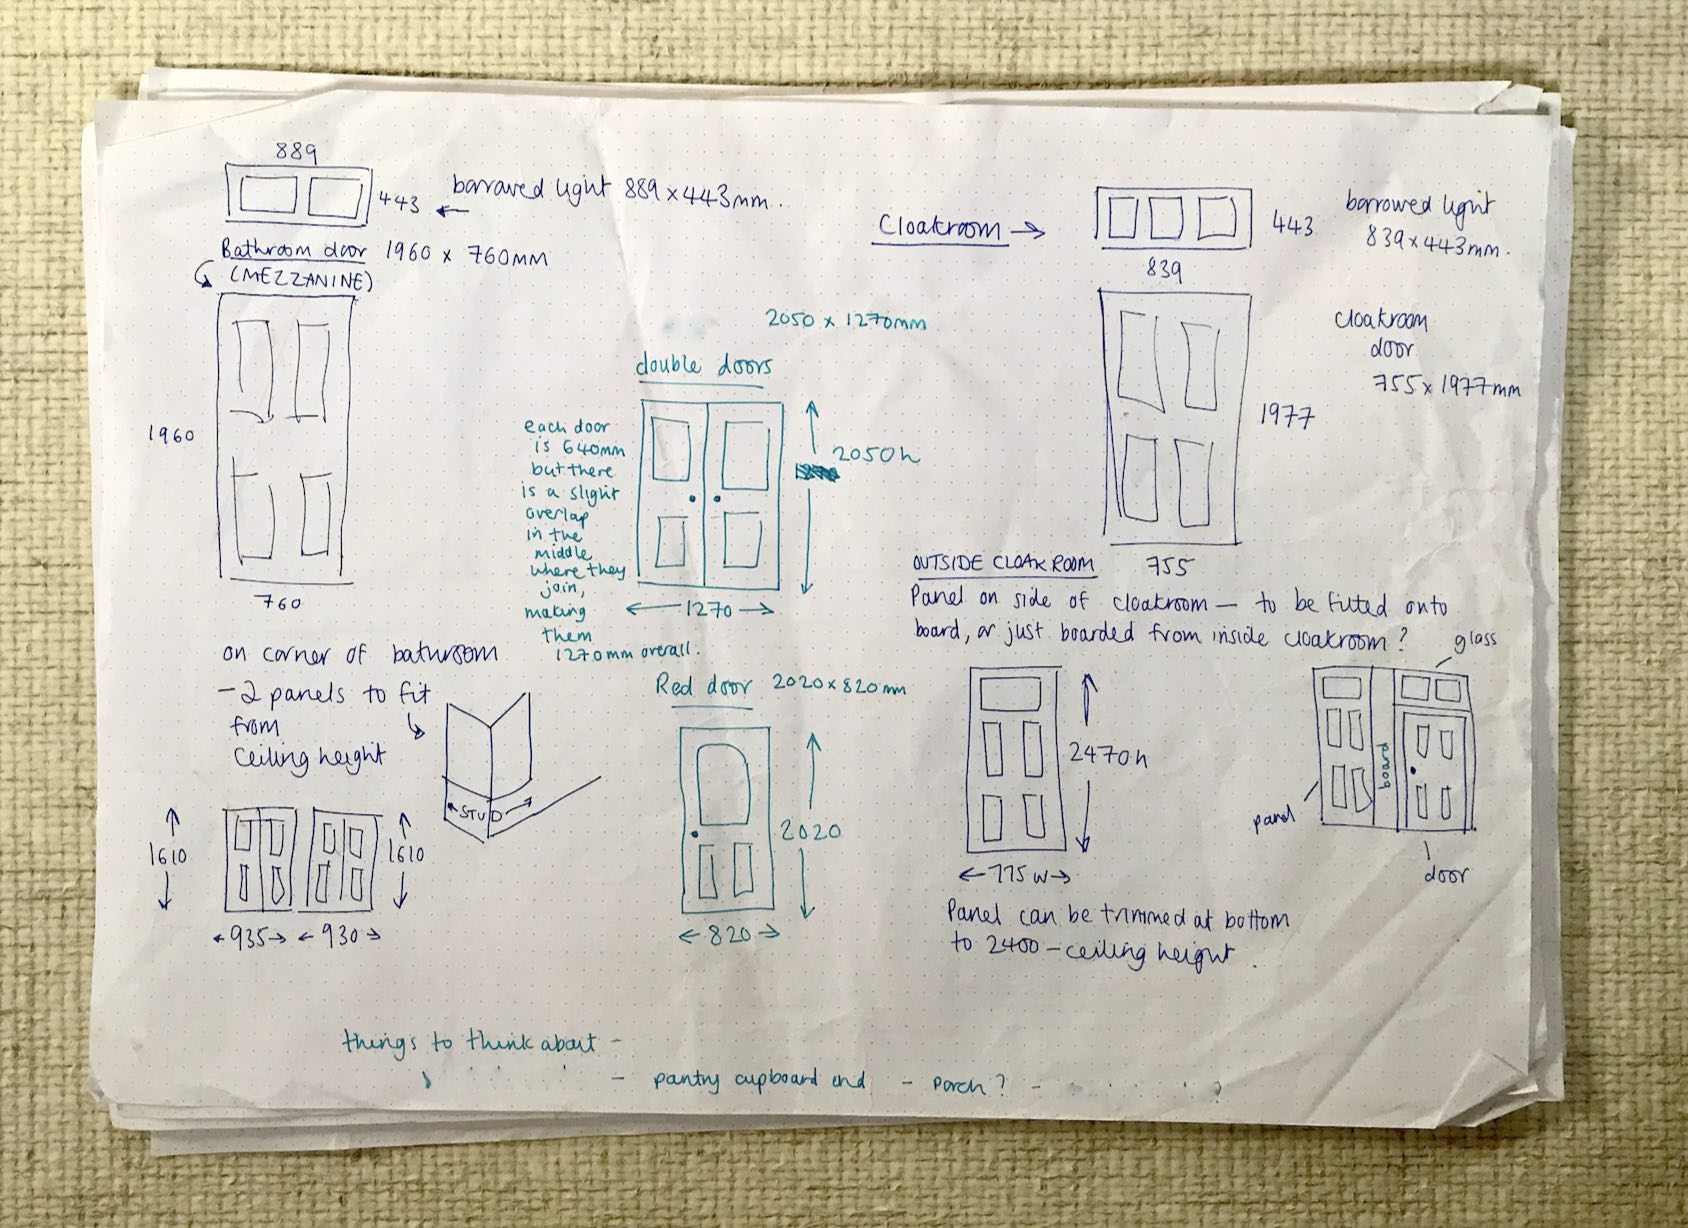 889
443
← borrowed light 889 x 443mm.
Bathroom door 1960 x 760MM
(MEZZANINE)
1960
760
on corner of bathroom
- 2 panels to fit
from
ceiling height
←STUD→
1610
1610
←935→ ←930→
2050 x 1270mm
double doors
each door
is 640mm
but there
is a slight
overlap
in the
middle
where they
join,
making
them
1270mm overall.
2050h
←1270→
Red door 2020 x 820mm
2020
←820→
Cloakroom →
443
839
borrowed light
839 x 443mm.
cloakroom
door
755 x 1977mm
1977
755
OUTSIDE CLOAKROOM
Panel on side of cloakroom — to be fitted onto
board, or just boarded from inside cloakroom?
2470h
←775w→
glass
board
panel
door
Panel can be trimmed at bottom
to 2400 - ceiling height.
things to think about -
- pantry cupboard end - porch? -
?